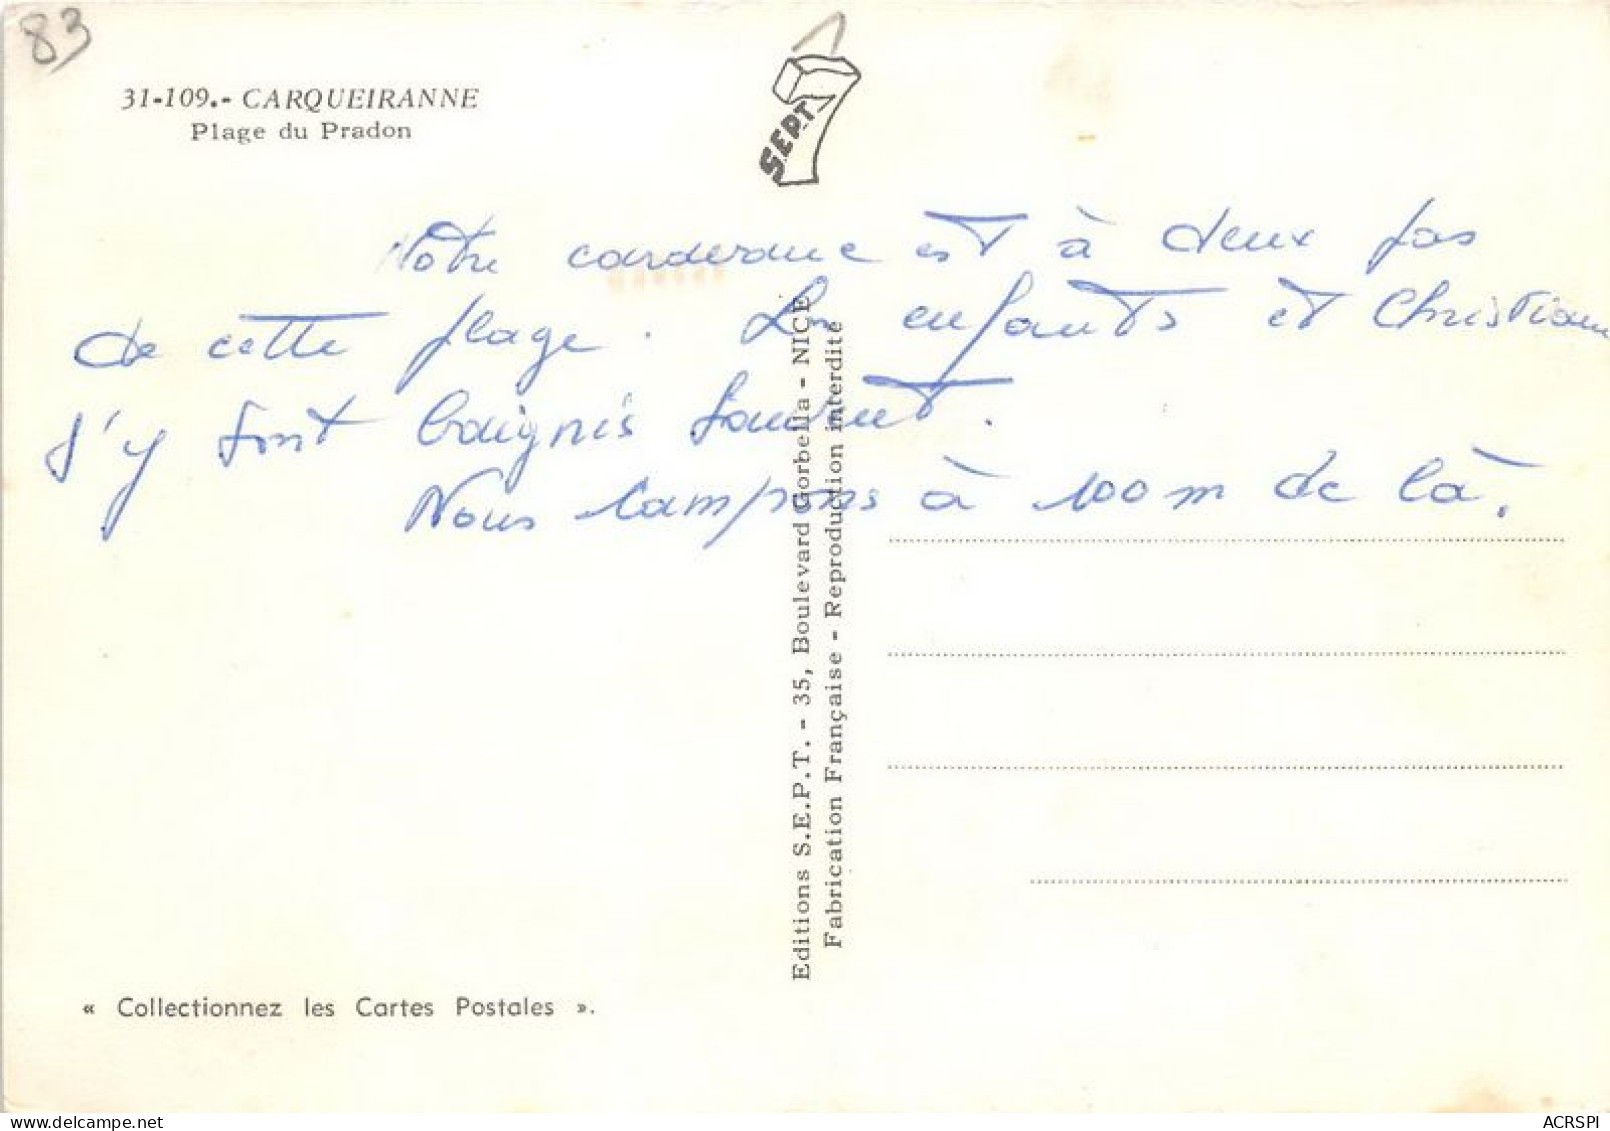 83
31-109.- CARQUEIRANNE
Plage du Pradon
S.E.P.T.
7
Notre caravane est à deux pas
de cette plage. Les enfants et Christiane
s'y sont baignés souvent.
Nous campons à 100 m de là.
Editions S.E.P.T. - 35, Boulevard Gorbella - NICE
Fabrication Française - Reproduction interdite
« Collectionnez les Cartes Postales ».
ACRSPI